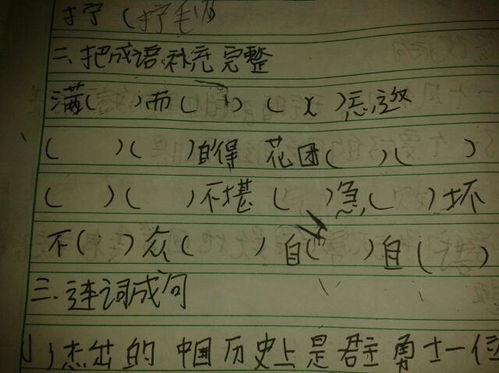 拧(拧毛巾)
二、把成语补充完整
满( )而( ) ( )( )忘返
( )( )自得 花团( )( )
( )( )不堪 ( )急( )坏
不( )众( ) 自( )自( )
三、连词成句
(1)杰出的 中国历史上 是 君主 勇士 一位